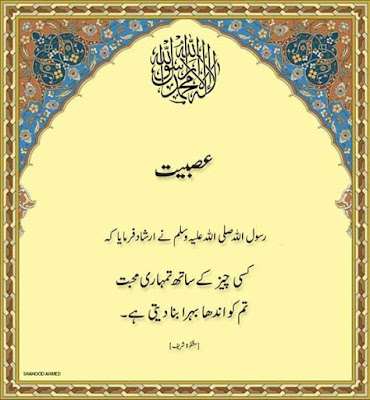 لا الہ الا اللہ محمد رسول اللہ
عصبیت
رسول اللہ صلی اللہ علیہ وسلم نے ارشاد فرمایا کہ
کسی چیز کے ساتھ تمہاری محبت
تم کو اندھا بہرا بنا دیتی ہے۔
[مشکوٰۃ شریف]
SHAHOOD AHMED